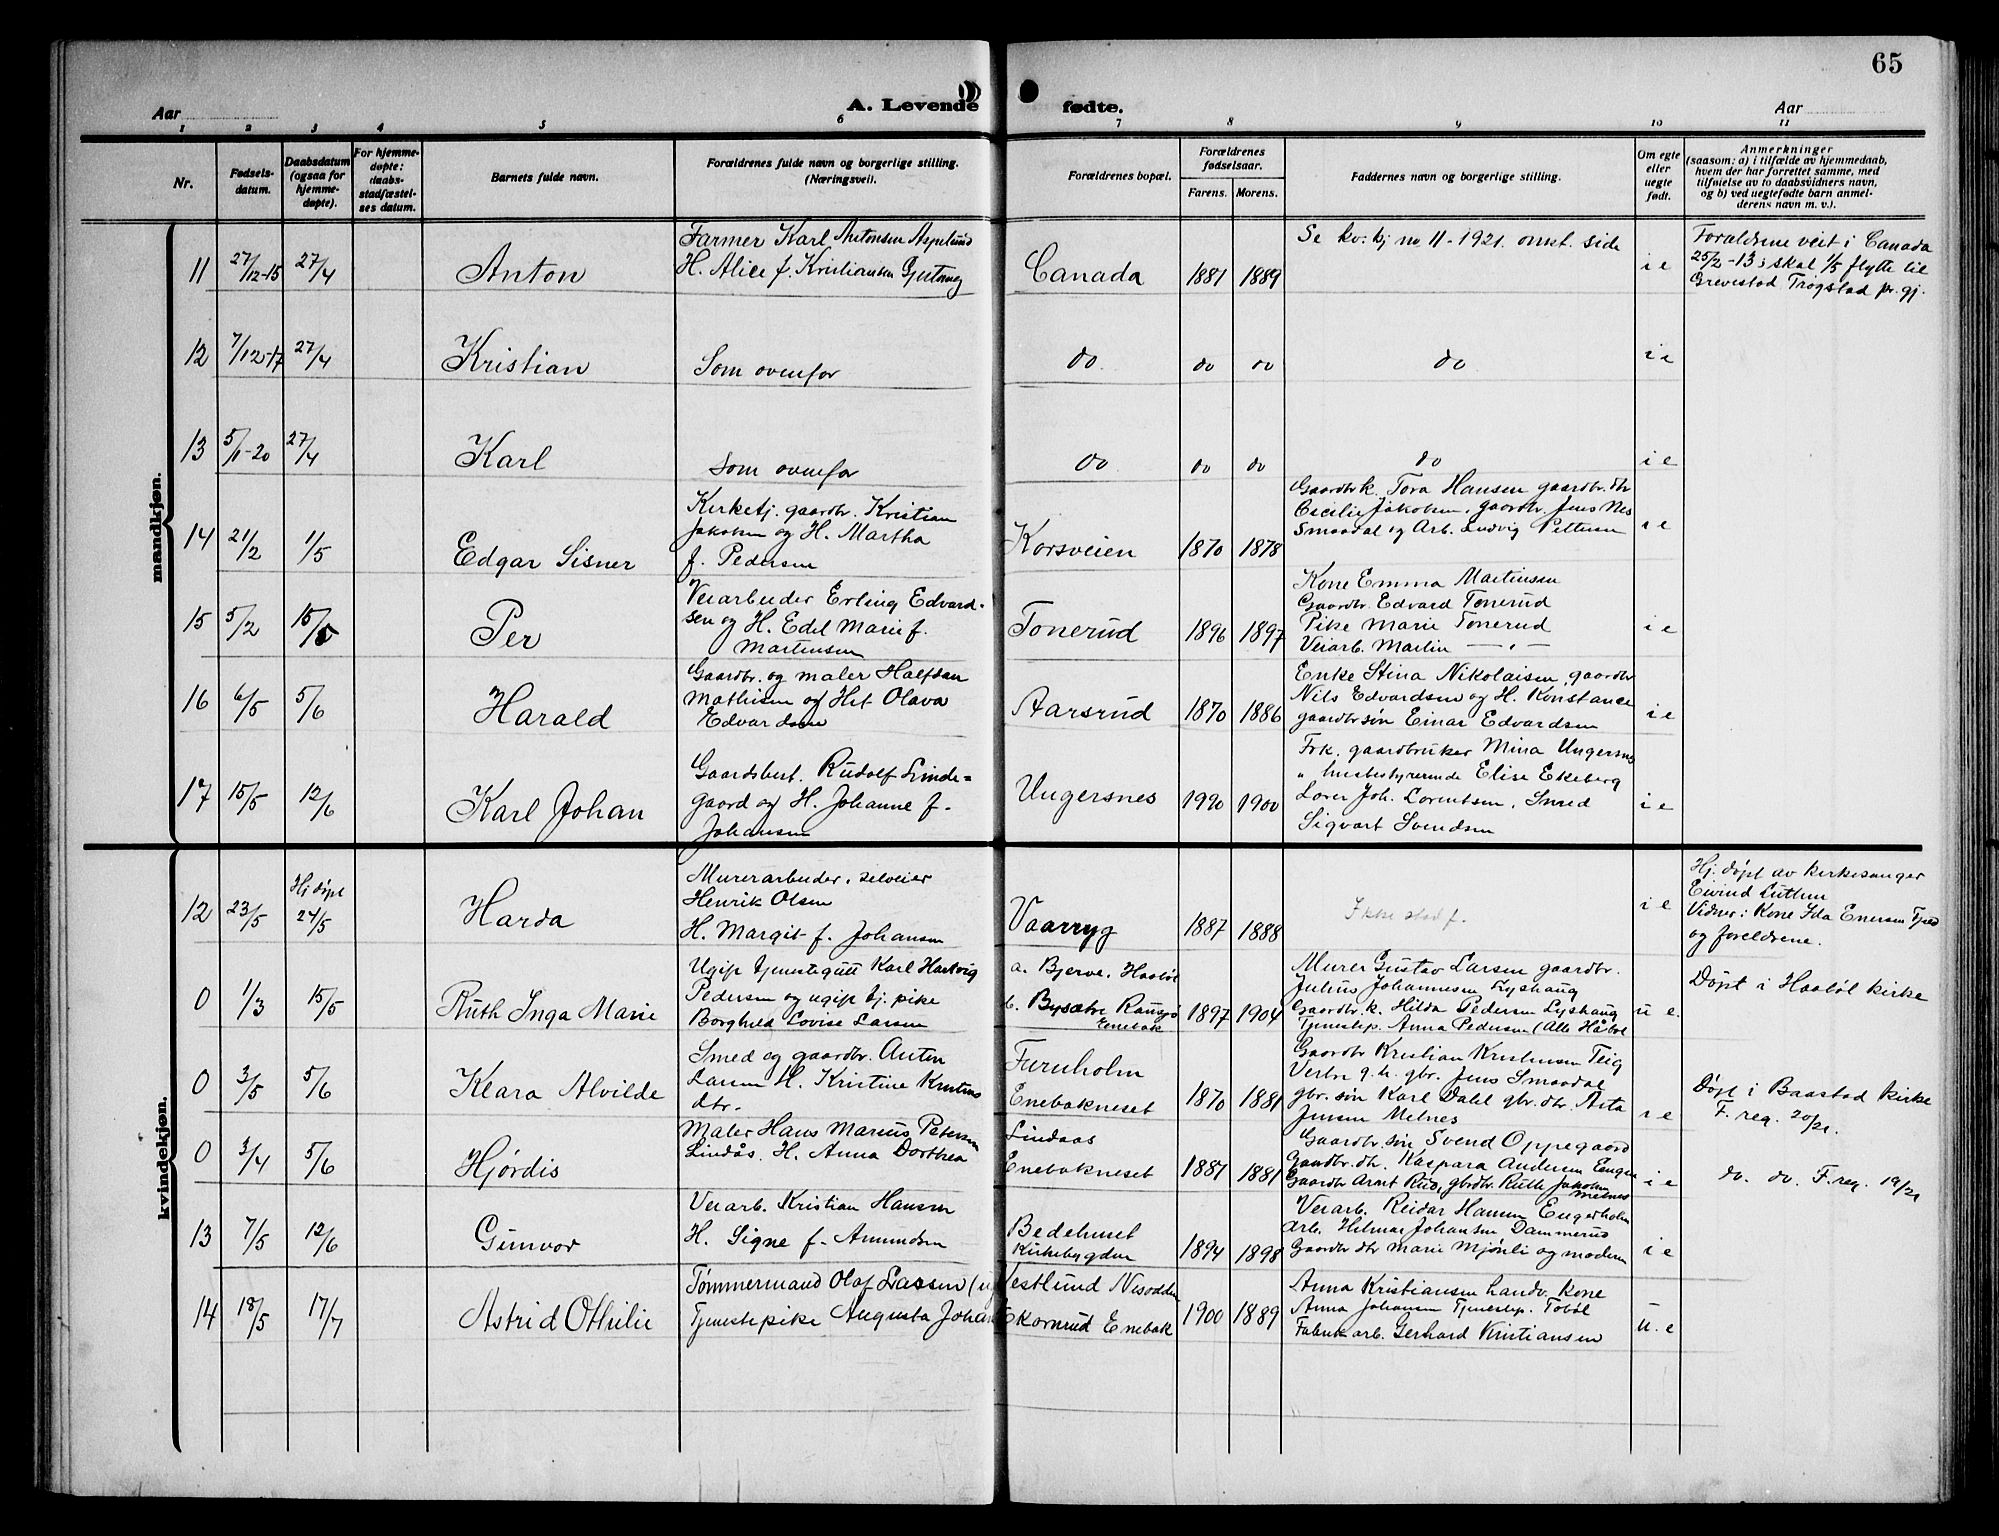 65
Aar
A. Levende fødte.
Aar
1 2 3 4 5 6 7 8 9 10 11
Nr.
Fødsels-
datum.
Daabsdatum
(ogsaa for
hjemme-
døpte).
For hjemme-
døpte:
daabs-
stadfæstel-
ses datum.
Barnets fulde navn.
Forældrenes fulde navn og borgerlige stilling.
(Næringsvei).
Forældrenes bopæl.
Forældrenes
fødselsaar.
Farens. Morens.
Faddernes navn og borgerlige stilling.
Om egte
eller
uegte
født.
Anmerkninger
(saasom: a) i tilfælde av hjemmedaab,
hvem der har forrettet samme, med
tilføielse av to daabsvidners navn,
og b) ved uegtefødte barn anmel-
derens navn m. v.).
mandkjøn.
11 27/12-15 27/4 Anton
Farmer Karl Antonsen Aspelund
H. Alice f. Kristiansen
Canada 1881 1889
Se kv: kj no 11-1921. omst. side
i e
Foraldrene viet i Canada
25/2-13; skal 1/5 flytte til
Grevestad Trøgstad pr. gj.
12 7/12-17 27/4 Kristian
Som ovenfor
do do do do i e
13 5/1-20 27/4 Karl
Som ovenfor
do do do do i e
14 21/2 1/5 Edgar Sisner
Kirketj. gaardbr. Kristian
Jakobsen og H. Martha
f. Pedersen
Korsveien 1870 1878
Gaardbrk. Tora Hansen gaardbr. dtr
Cecilie Jakobsen, gaardbr. Jens Nes
Smaadal og Arb. Ludvig Pettersen
i e
15 5/2 15/5 Per
Veiarbeider Erling Edvard-
sen og H. Edel Marie f.
Martinsen
Tonerud 1896 1897
Kone Emma Martinsen
Gaardbr. Edvard Tonerud
Pike Marie Tonerud
Veiarb. Martin — " —
i e
16 6/5 5/6 Harald
Gaardbr. og maler Halfdan
Mathisen og Het Olava
Edvardsen
Aarsrud 1870 1886
Enke Stina Nikolaisen, gaardbr
Nils Edvardsen og H. Konstance
gaardbr søn Einar Edvardsen
i e
17 15/5 12/6 Karl Johan
Gaardsbest. Rudolf Linde=
gaard og H. Johanne f.
Johansen
Ungersnes 1990 1900
Frk. gaardbruker Mina Ungersnes
" husbestyrerinde Elise Ekeberg
Lorer Joh. Lorentsen, Smed
Sigvart Svendsen
i e
kvindekjøn.
12 23/5 Hj døpt
24/5 Harda
Murerarbeider, selveier
Henrik Olsen
H. Margit f. Johansen
Vaarryg 1887 1888
Ikke stadf.
i e
Hj. døpt av kirkesanger
Eivind Lutlen
Vidner: Kone Ida Enersen
og foreldrene.
0 1/3 15/5 Ruth Inga Marie
Ugift tjenestegutt Karl Hartvig
Pedersen og ugift tj. pike
Borghild Lovise Larsen
a. Bjerve. Haabøl
b. Bysætre Rausjø
Enebak
1897 1904
Murer Gustav Larsen gaardbr.
Julius Johannesen Lyshaug
Gaardbr. k. Hilda Pedersen Lyshaug
Tjenestep. Anna Pedersen (Alle Håbøl
u e.
Døpt i Haabøl kirke
0 3/5 5/6 Klara Alvilde
Smed og gaardbr. Anton
Larsen H. Kristine Kristens
dtr.
Furuholm
Enebakneset 1870 1881
Gaardbr Kristian Kristensen Teig
Verbr g. h. gbr. Jens Smaadal
gbr. søn Karl Dahl gbr. dtr. Asta
Jensen Melnes
i e
Døpt i Baastad kirke
F. reg. 20/21.
0 3/4 5/6 Hjørdis
Maler Hans Marius Petersen
Lindås. H. Anna Dorthea
Lindaas
Enebakneset 1881 1881
Gaardbr. søn Svend Oppegaard
Gaardbr. dtr. Kaspara Andersen
Gaardbr Arnt Rud, gbrdtr. Ruth Jakobsen
Melnes
i e
do. do. F. reg. 19/21
13 7/5 12/6 Gunvor
Veiarb. Kristian Hansen
H. Signe f. Amundsen
Bedehuset
Kirkebygden 1894 1898
Veiarb. Reidar Hansen Engerholm
Arb. Hilmar Johansen Dammerud
Gaardbr dtr Marie Mjønli og modern
i e
14 18/5 17/7 Astrid Othilie
Tømmermand Olaf Lassen (u
Tjenestepike Augusta Johan
Vestlund Nesodden
Ekornrud Enebak 1900 1889
Anna Kristiansen Landv. kone
Anna Johansen Tjenestep. Tobøl
Fabrik arb. Gerhard Kristiansen
u. e